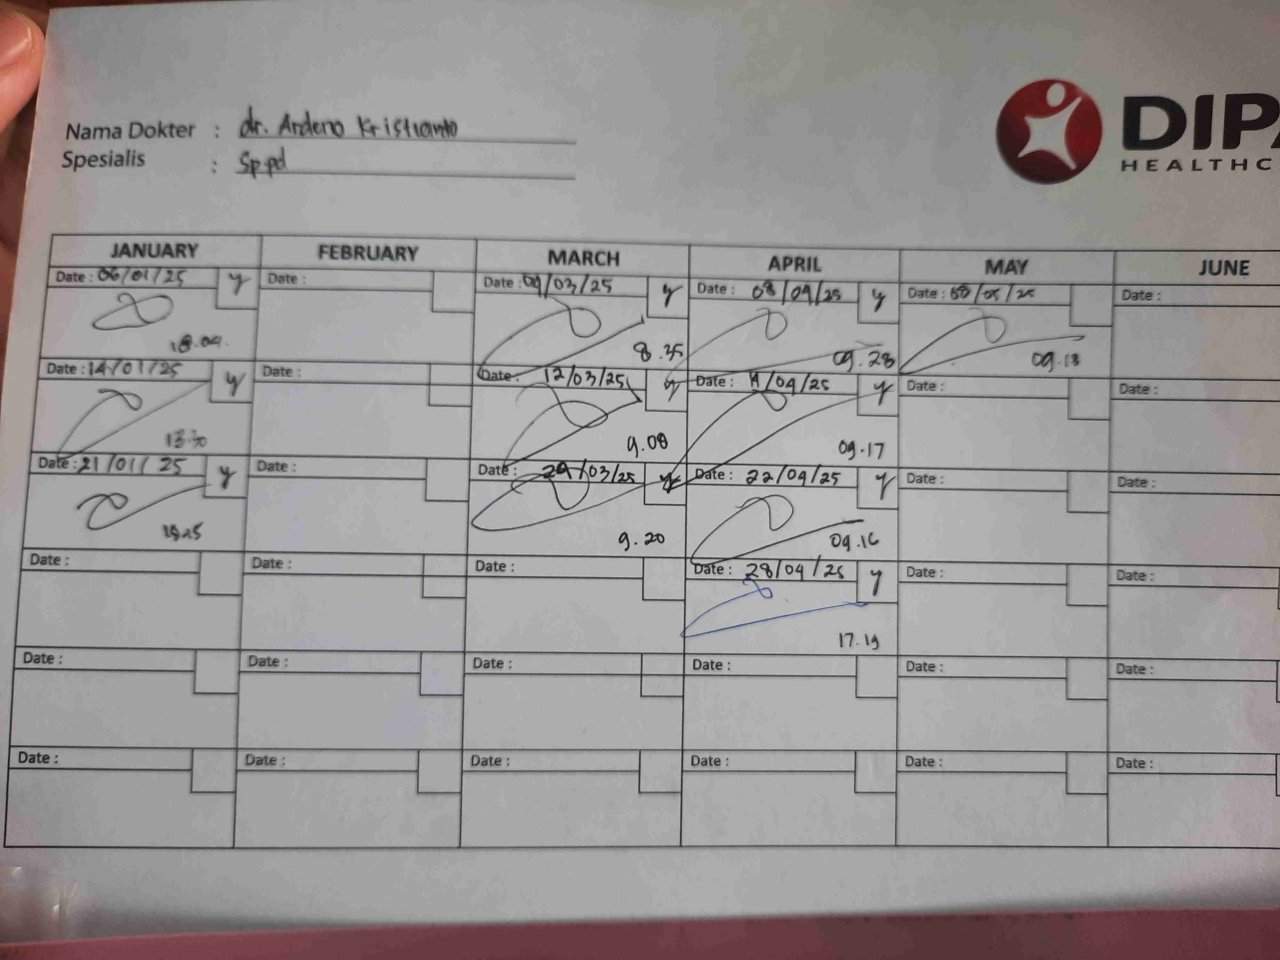 Nama Dokter : dr. Ardeno Kristianto
Spesialis : Sp.pd
DIPA
HEALTHC
JANUARY FEBRUARY MARCH APRIL MAY JUNE
Date : 06/01/25 y Date : Date : 04/03/25 y Date : 08/04/25 y Date : /05/25 Date :
18.04. 8.35 09.28 09.13
Date : 14/01/25 y Date : Date : 12/03/25 y Date : /04/25 y Date : Date :
9.08 09.17
Date : 21/01/25 y Date : Date : 24/03/25 y Date : 22/04/25 y Date : Date :
9.20 09.16
Date : Date : Date : Date : 28/04/25 y Date : Date :
17.19
Date : Date : Date : Date : Date : Date :
Date : Date : Date : Date : Date : Date :